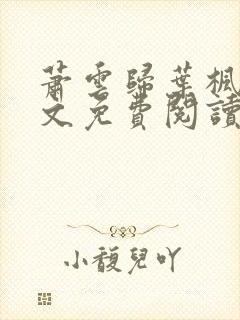 蕭雲歸葉楓
文免費閱讀
小馥兒吖